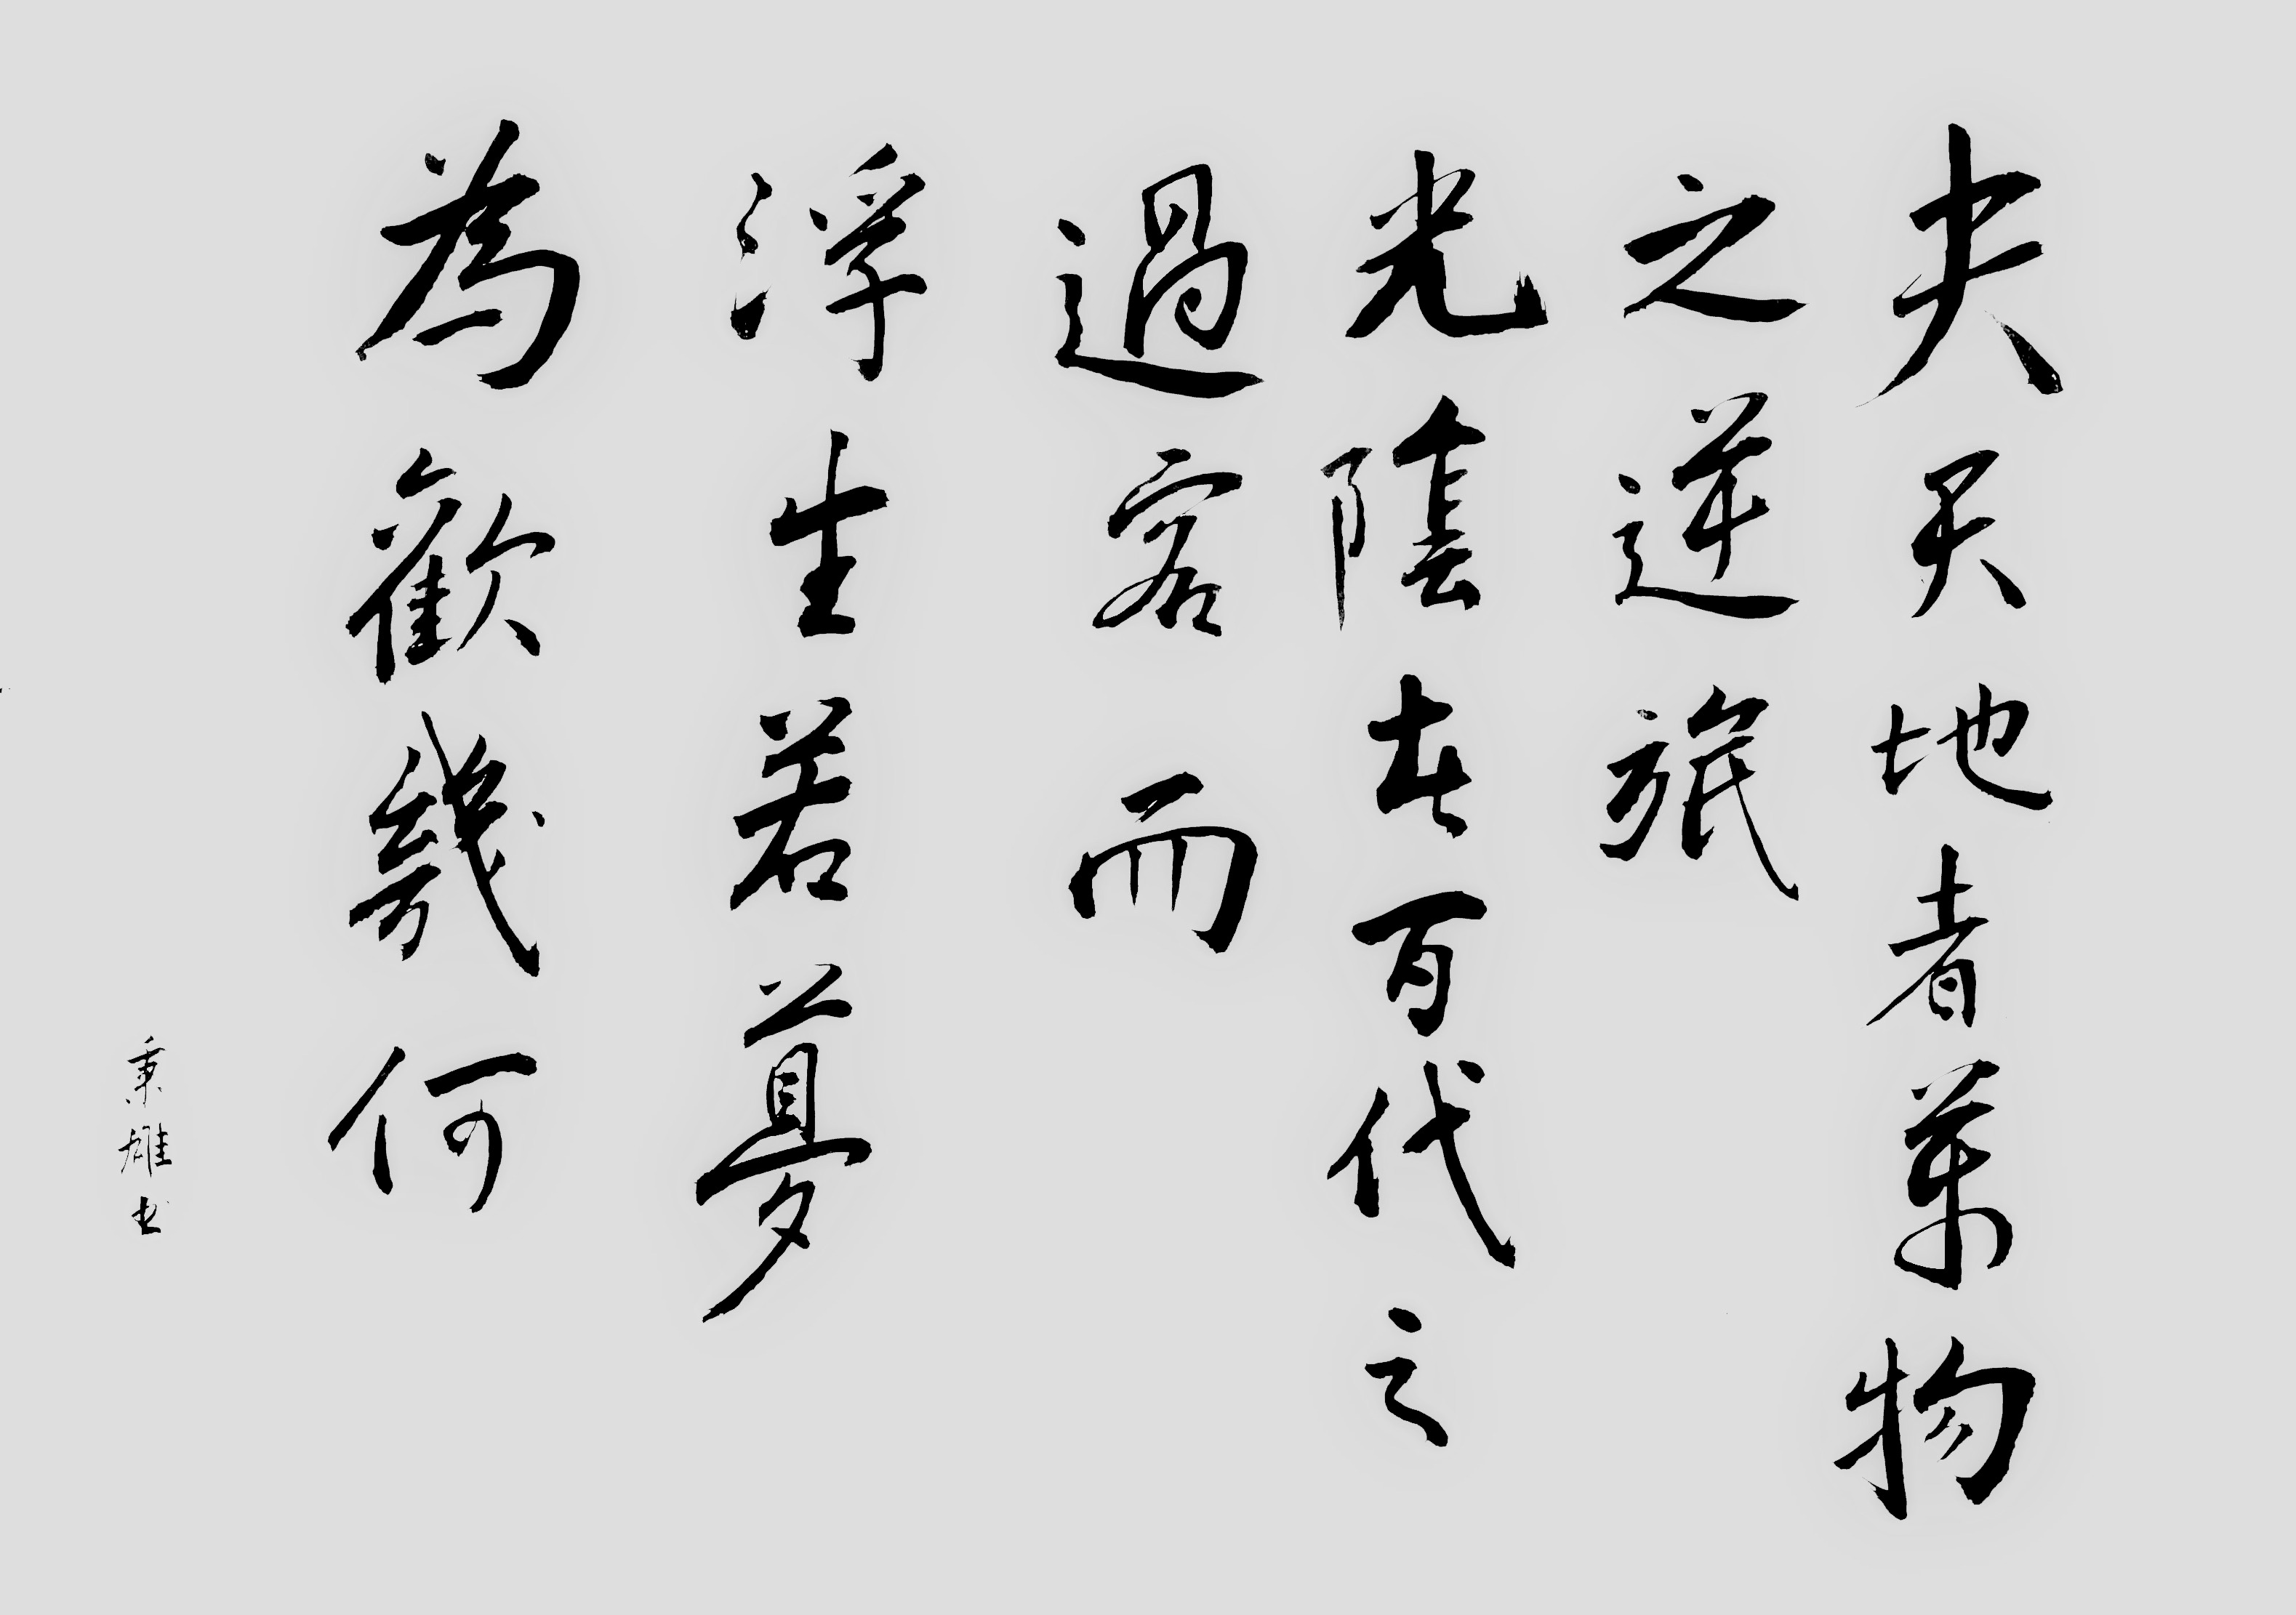 夫天地者萬物
之逆旅
光陰者百代之
過客而
浮生若夢
為歡幾何
秉雄书